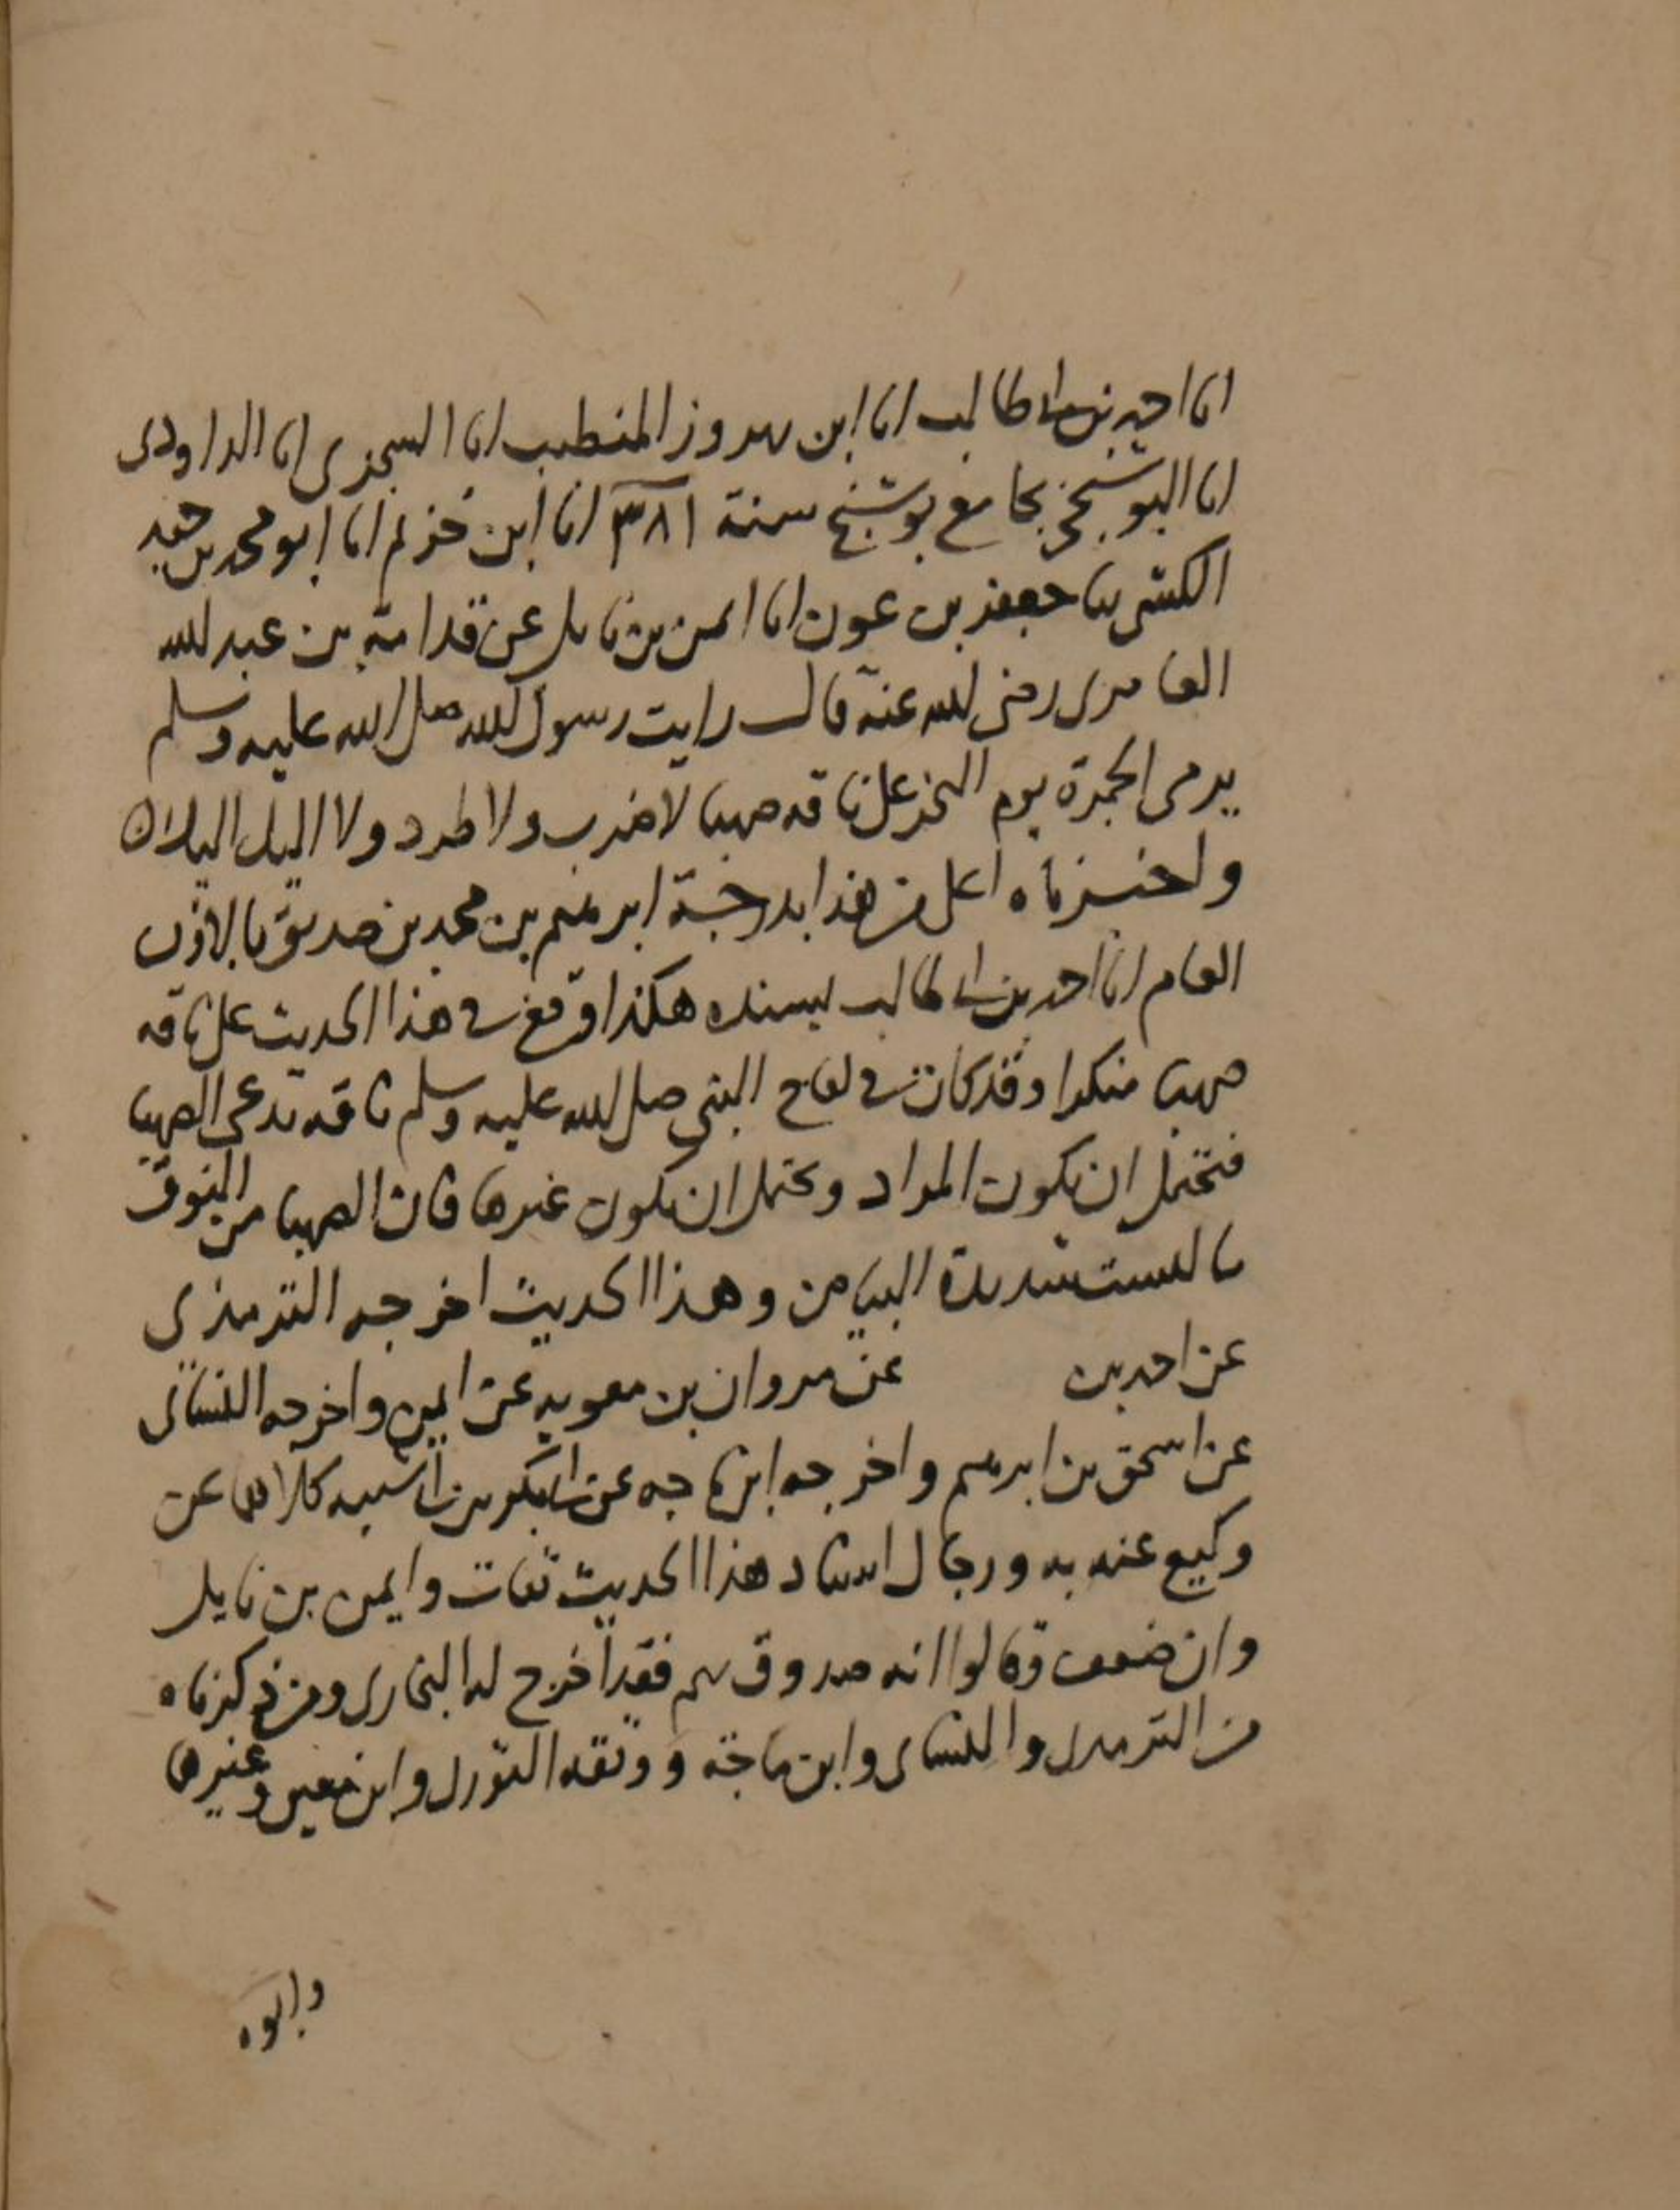 انا احمد بن ابي طالب انا ابن بهروز المتطبب انا السجزى انا الداودى
انا البوشنجى بجامع بوشنج سنة ٣٨١ انا ابن خزيم انا ابو محمد بن حميد
الكشى ثنا جعفر بن عون انا ايمن بن نابل عن قدامة بن عبد الله
العامرى رضى الله عنه قال رايت رسول الله صلى الله عليه وسلم
يرمى الجمرة يوم النحر على ناقه صهبا لا ضرب ولا طرد ولا اليك اليك ان
واخبرناه اعلى من هذا بدرجة ابرهيم بن محمد بن صديق بالاذن
العام انا احمد بن ابي طالب بسنده هكذا وقع في هذا الحديث على ناقه
صهبا منكرا وقد كان في لقاح النبي صلى الله عليه وسلم ناقه تدعى الصهبا
فتحتمل ان يكون المراد ويحتمل ان يكون غيرها فان الصهبا من النوق
ما ليست شديدة البياض وهذا الحديث اخرجه الترمذى
عن احمد بن عن مروان بن معويه عن ايمن واخرجه النسائى
عن اسحق بن ابرهيم واخرجه ابن ماجه عن ابي بكر بن ابي شيبه كلاهما عن
وكيع عنه به ورجال اسناد هذا الحديث ثقات وايمن بن نايل
وان ضعف وقالوا انه صدوق يهم فقد اخرج له البخارى ومن ذكرناه
من الترمذى والنسائى وابن ماجة ووثقه الثورى وابن معين وغيرها
وابوه